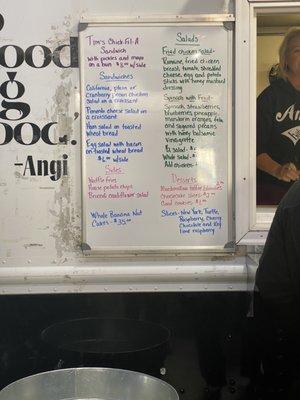 Tim's Chick-Fil-A
Sandwich
with pickles and mayo
on a bun w/side
Sandwiches
California, plain or
Cranberry pecan chicken
salad on a croissant
Pimento cheese salad on
a croissant
Ham salad on toasted
wheat bread
Egg salad with bacon
on toasted wheat bread
w/side
Sides
Waffle fries
potato chips
Broccoli cauliflower salad
Whole Banana Nut
Cakes - $35.00
Salads
Fried chicken salad-
Romaine, fried chicken
breast, tomato, shredded
cheese, egg and potato
sticks with honey mustard
dressing
Spinach with Fruit-
Spinach, strawberries,
blueberries, pineapple,
mandarin oranges, feta
and sugared pecans
with honey balsamic
vinaigrette
salad -
Whole salad -
chicken -
Desserts
Marshmallow
Cheesecake slices -
cookies -
Slices - New York, Turtle,
Raspberry, Cherry,
Chocolate and Key
lime raspberry
ood
g
ood.
-Angi